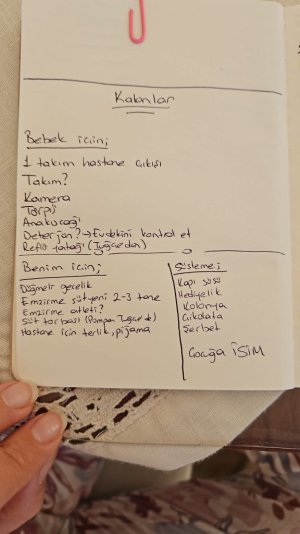 Kalanlar
Bebek için;
1 takım hastane çıkışı
Takım?
Kamera
Anakucağı
Deterjan? → Evdekini kontrol et
yatağı (Tuğçe'den)
Benim için;
Düğmeli gecelik
Emzirme sütyeni 2-3 tane
Emzirme atleti?
Süt torbası (Pompan Tuğçe'de)
Hastane için terlik, pijama
Süsleme;
Kapı süsü
Hediyelik
Kolonya
Çikolata
Şerbet
Çocuğa İSİM